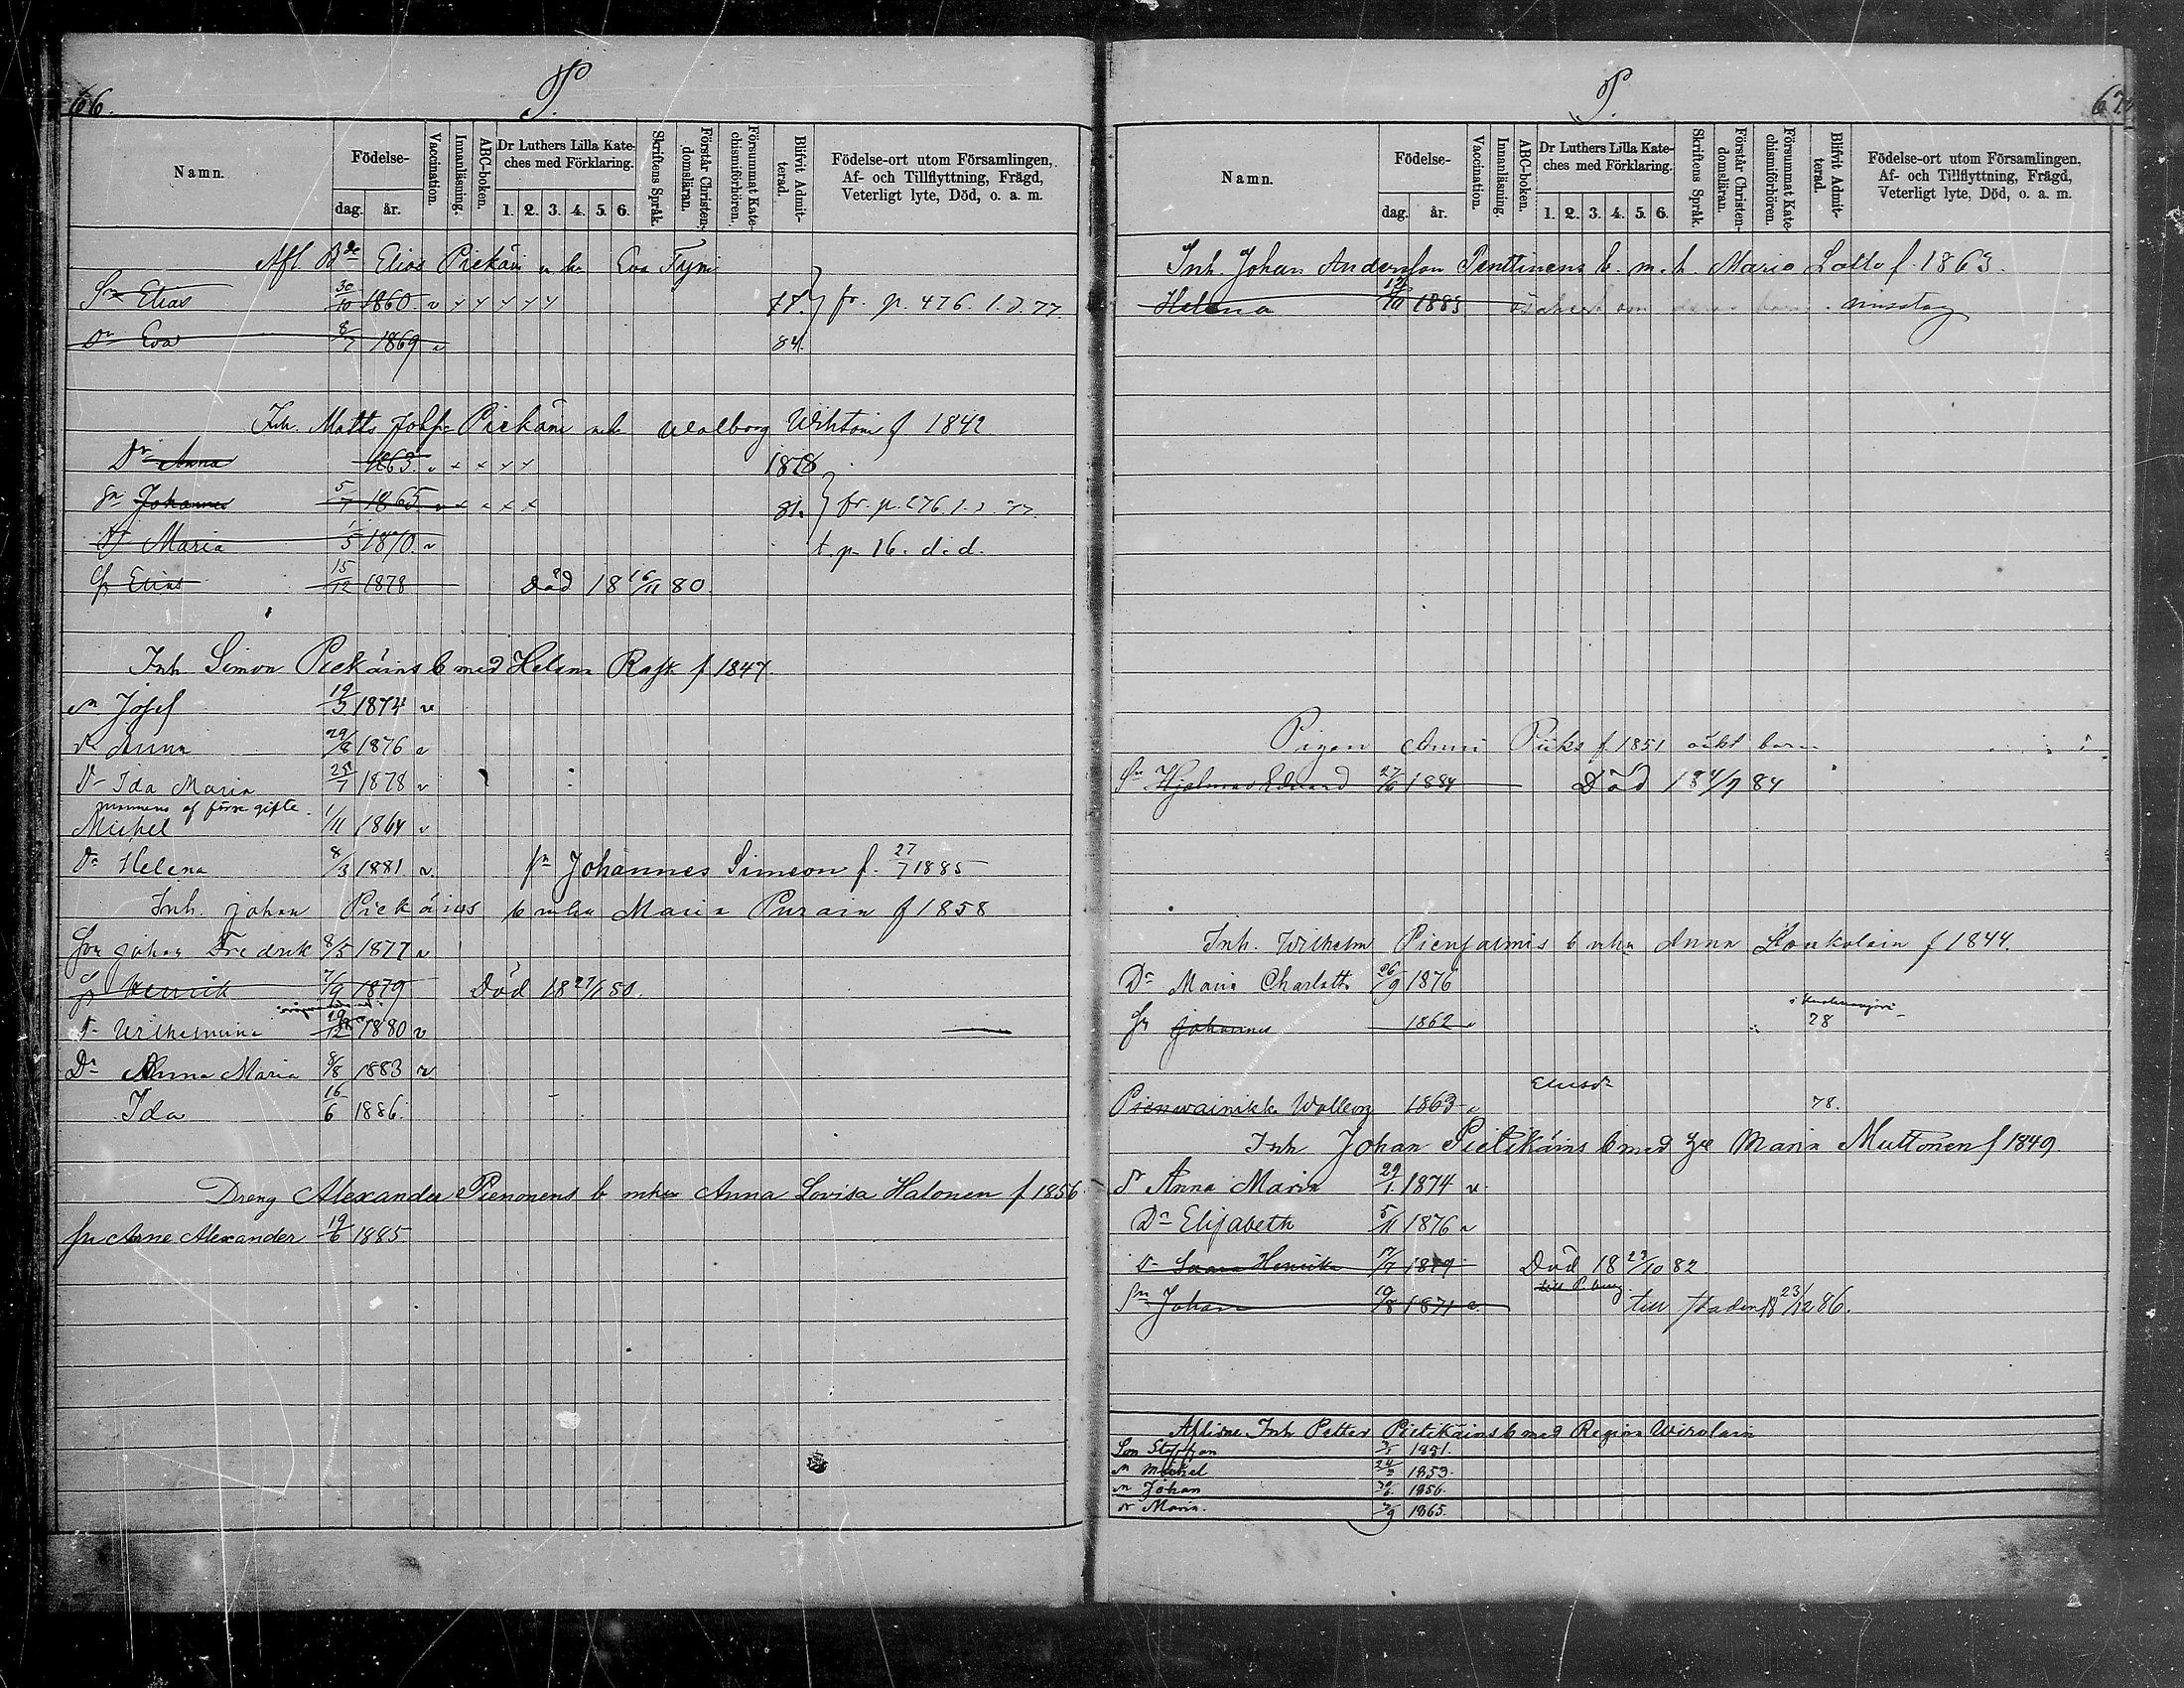 66.
P.
Namn.
Födelse-
dag.
år.
Vaccination.
Innanläsning.
ABC-boken.
Dr Luthers Lilla Kate-
ches med Förklaring.
1. 2. 3. 4. 5. 6.
Skriftens Språk.
Förstår Christen-
domsläran.
Försummat Kate-
chismiförhören.
Blifvit Admit-
terad.
Födelse-ort utom Församlingen,
Af- och Tillflyttning, Frägd,
Veterligt lyte, Död, o. a. m.
Afl. Elias Piekäin Eva Tyni
Sn Elias 30/10 1860. v fr. p. 476. 1. d. 77.
Dr Eva 8/7 1869 v 84.
Inh. Matts Piekäin Walborg f 1842
Dr Anna 1863. v 1878
Sn Johannes 5/7 1865 v 81.
Dr Maria 1/5 1870. v t. p 16. d. d.
Sn Elias 15/12 1878 Död 18 16/11 80.
Inh Simon Piekäins b med Helena Rask f 1847.
sn Josef 19/3 1874 v
dr Anna 29/8 1876 v
Dr Ida Maria 25/7 1878 v
mannens af förra gifte.
Michel 1/11 1864 v
Dr Helena 8/3 1881 v. sn Johannes Simeon f. 27/7 1885
Inh. Johan Piekäins b Maria Purain f 1858
Son Johan Fredrik 8/5 1877 v
Sn Henrik 7/9 1879 Död
dr Wilhelmina 19/12 1880 v
Dr Anna Maria 8/8 1883 v.
Ida 16/6 1886.
Dreng Alexander Pienonens b Anna Lovisa Halonen f 1856
sn Arne Alexander 19/6 1885
P.
67
Namn.
Födelse-
dag.
år.
Vaccination.
Innanläsning.
ABC-boken.
Dr Luthers Lilla Kate-
ches med Förklaring.
1. 2. 3. 4. 5. 6.
Skriftens Språk.
Förstår Christen-
domsläran.
Försummat Kate-
chismiförhören.
Blifvit Admit-
terad.
Födelse-ort utom Församlingen,
Af- och Tillflyttning, Frägd,
Veterligt lyte, Död, o. a. m.
Inh. Johan Andersson Penttinens b. m. h. Maria Latto f. 1863.
Helena 1883 misstag
Pigan Anni Piiks f. 1851 oäkt barn
Sn Hjalmar Edvard 27/6 1884 Död 18 4/9 84
Inh. Wilhelm b mhu Anna f 1844.
Dr Maria Charlotta 26/9 1876
Sn Johannes 1862 v 78
Walborg 1863 v 78.
Inh Johan Pietikäins b med Maria Muttonen f 1849.
dr Anna Maria 29/1. 1874 v.
Dr Elisabeth 5/11 1876 v
dr Henrika 17/7 1879 Död 18 23/10 82
Sn Johan 19/8 1871 v. till staden 18 23/12 86.
Aflidne Inh Petter Pietikäins b med Regina Wirolain
Son Staffan 1851.
sn Michel 24/3 1853.
sn Johan 1856.
dr Maria. 1865.